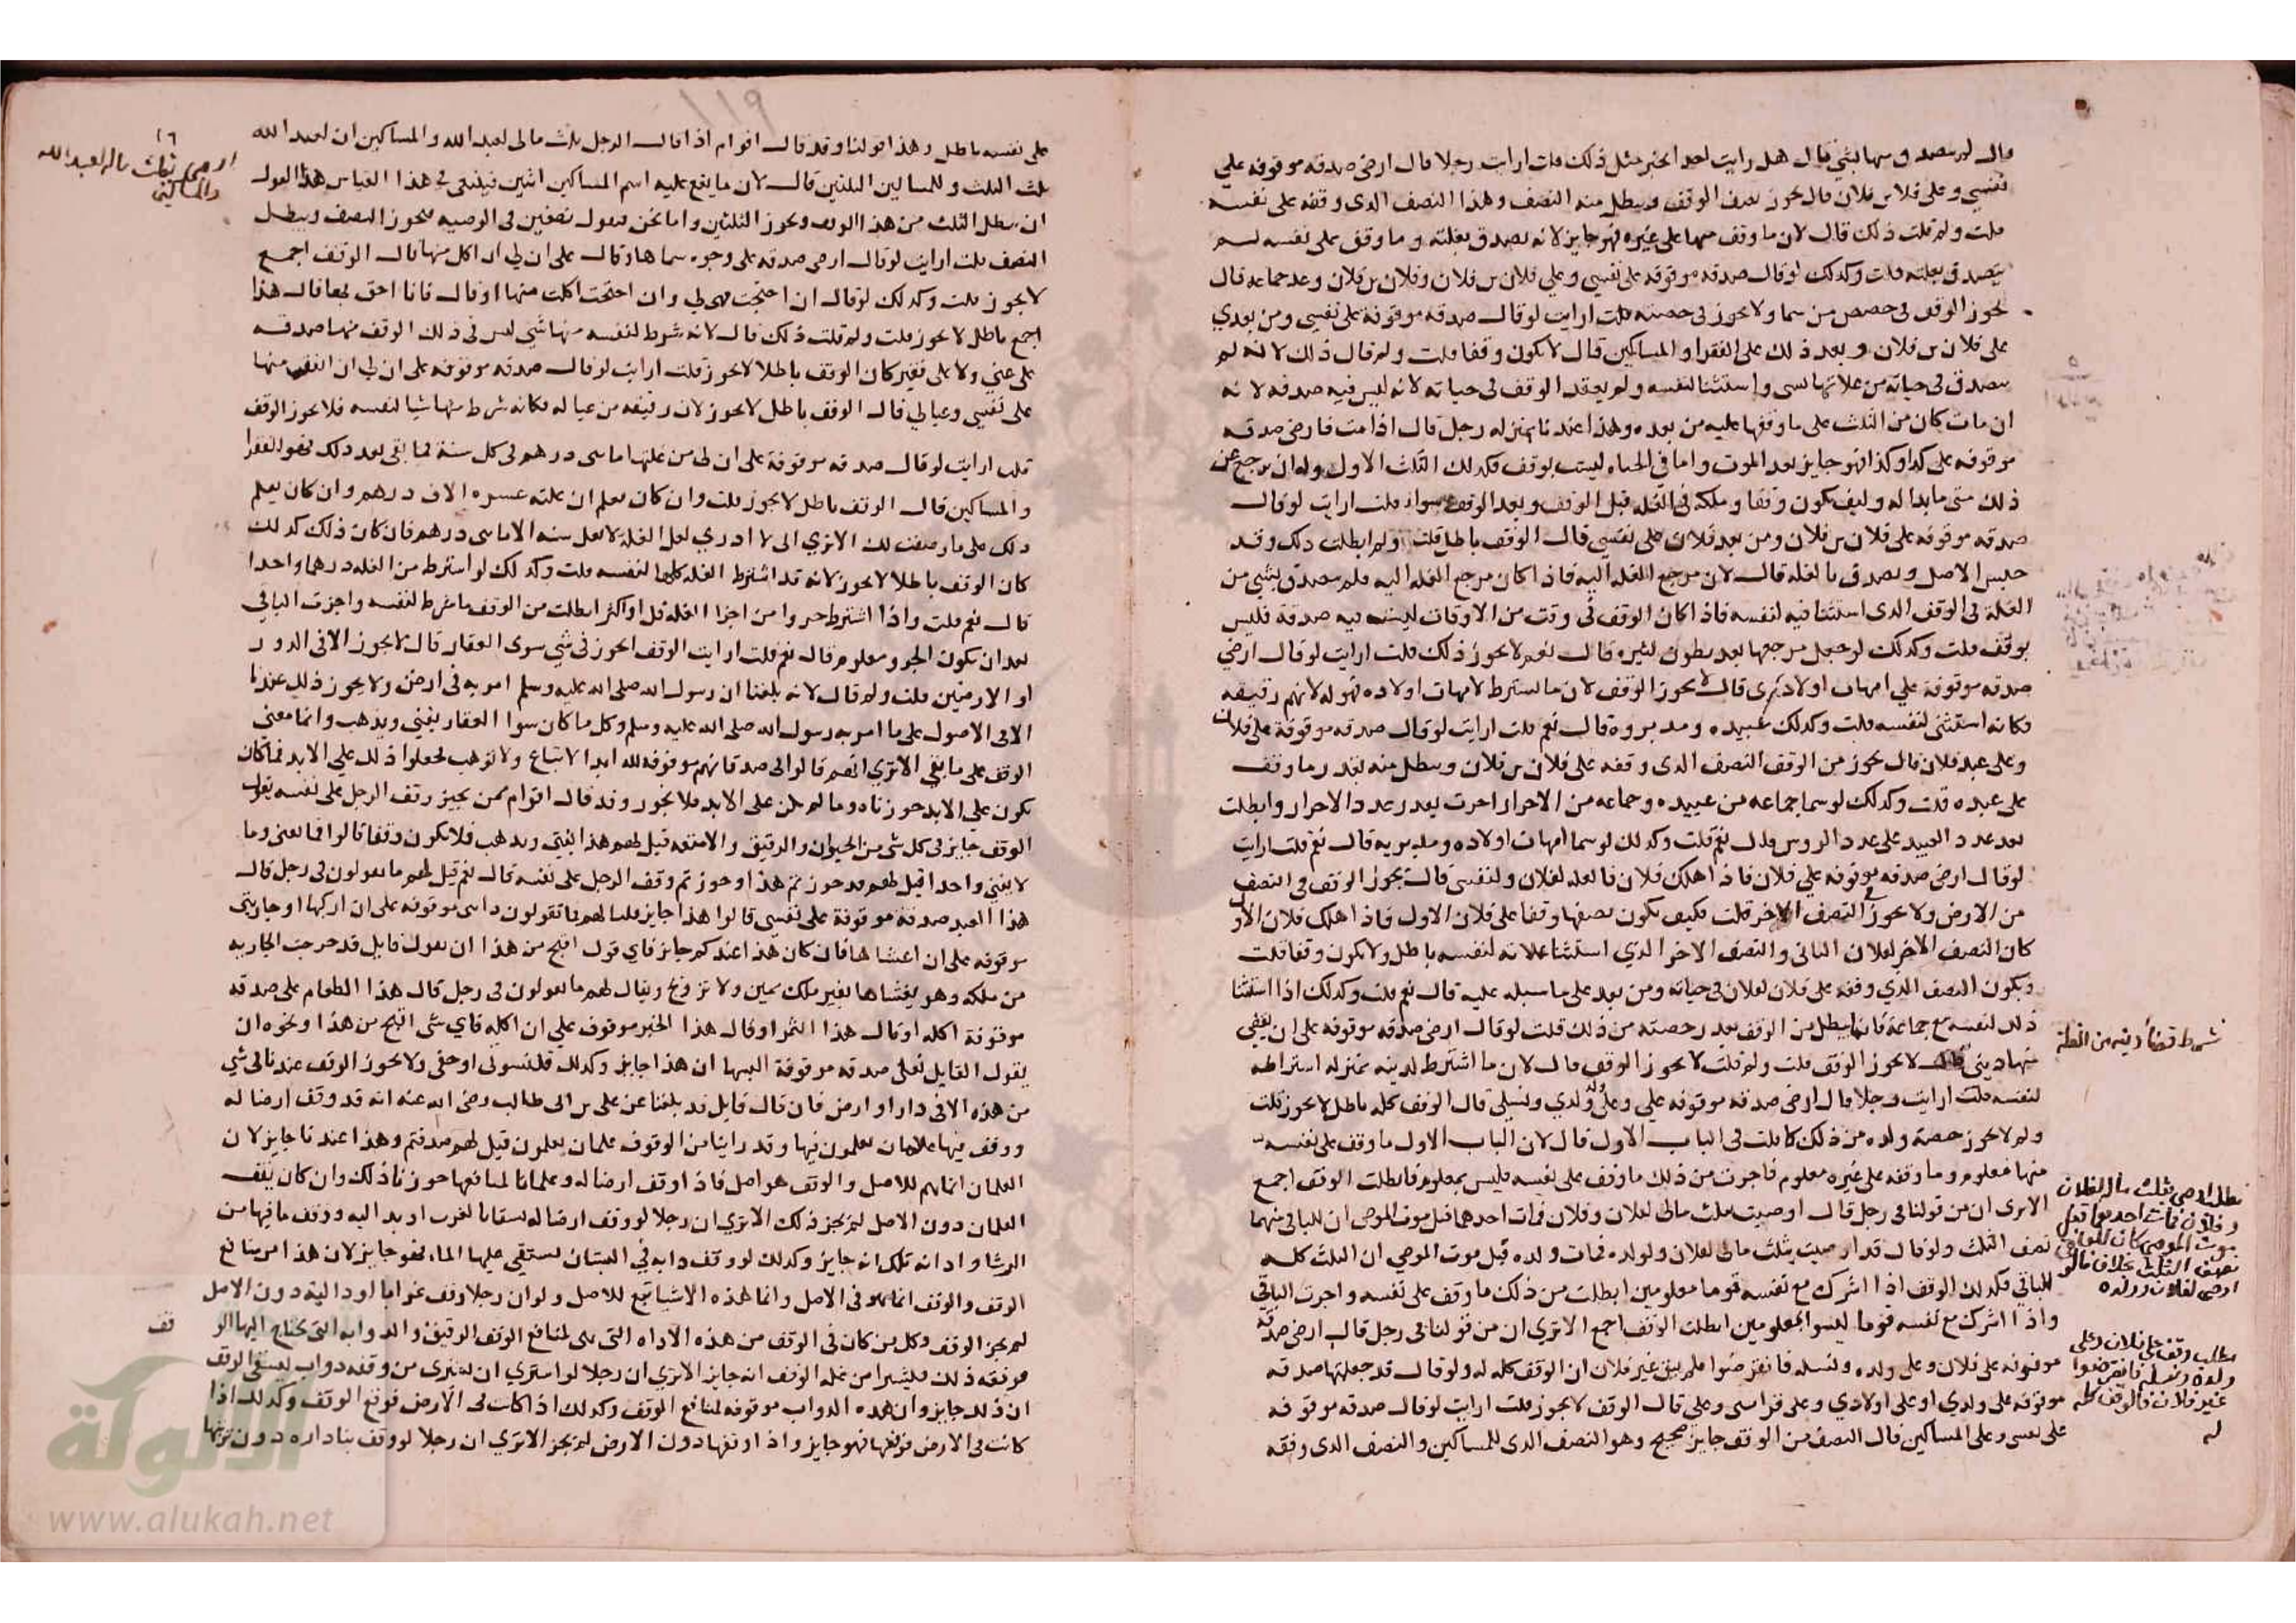 قال لم يتصدق منها بشي قال هل رايت احدا يجيز مثل ذلك قلت ارايت رجلا قال ارضي صدقه موقوفه علي
نفسي وعلى فلان بن فلان قال يجوز نصف الوقف ويبطل منه النصف وهذا النصف الذى وقفه على نفسه
قلت ولم قلت ذلك قال لان ما وقف منها على غيره فهو جايز لانه تصدق بغلته وما وقف على نفسه لم
يتصدق بغلته قلت وكذلك لو قال صدقه موقوفه على نفسي وعلي فلان بن فلان وفلان بن فلان وعد جماعه قال
يجوز الوقف فى حصص من سما ولا يجوز فى حصته قلت ارايت لو قال صدقه موقوفة على نفسي ومن بعدي
على فلان بن فلان وبعد ذلك على الفقرا والمساكين قال لا يكون وقفا قلت ولم قال ذلك لانه لم
يتصدق فى حياته من غلاتها بشى واستثنا لنفسه ولم يعقد الوقف فى حياته لانه ليس فيه صدقه لانه
ان مات كان من الثلث على ما وقفها عليه من بعده وهذا عندنا بمنزله رجل قال اذا مت فارضي صدقه
موقوفه على كذا وكذا فهو جايز بعد الموت واما في الحياه ليست بوقف فكذلك الثلث الاول وله ان يرجع عن
ذلك متى ما بدا له وكيف يكون وقفا وملكه فى الغله قبل الوقف وبعد الوقف سوا قلت ارايت لو قال
صدقه موقوفه على فلان بن فلان ومن بعد فلان على نفسي قال الوقف باطل قلت ولم ابطلت ذلك وقد
حبس الاصل وتصدق بالغله قال لان مرجع الغله اليه فاذا كان مرجع الغله اليه فلم يتصدق بشي من
الغلة فى الوقف الذى استثنا فيه لنفسه فاذا كان الوقف في وقت من الاوقات ليست فيه صدقة فليس
بوقف قلت وكذلك لو جعل مرجعها بعد بطون لغيره قال نعم لا يجوز ذلك قلت ارايت لو قال ارضي
صدقه موقوفة علي امهات اولادي قال لا يجوز الوقف لان ما اشترط لامهات اولاده فهو له لانهم رقيقه
فكانه استثنى لنفسه قلت وكذلك عبيده ومدبروه قال نعم قلت ارايت لو قال صدقه موقوفة على فلان
وعلى عبد فلان قال يجوز من الوقف النصف الذى وقفه على فلان بن فلان ويبطل منه بقدر ما وقف
على عبده قلت وكذلك لو سما جماعه من عبيده وجماعه من الاحرار اجزت بقدر عدد الاحرار وابطلت
بعدد العبيد على عدد الروس قال نعم قلت وكذلك لو سما امهات اولاده ومدبريه قال نعم قلت ارايت
لو قال ارضي صدقه موقوفه علي فلان فاذا هلك فلان فالغله لفلان ولنفسي قال يجوز الوقف فى النصف
من الارض ولا يجوز في النصف الاخر قلت فكيف يكون نصفها وقفا على فلان الاول فاذا هلك فلان الاول
كان النصف الاخر لفلان الثانى والنصف الاخر الذي استثنا غلاته لنفسه باطل ولا يكون وقفا قلت
ويكون النصف الذي وقفه على فلان لفلان فى حياته ومن بعد على ما سبله عليه قال نعم قلت وكذلك اذا استثنا
ذلك لنفسه مع جماعة فانما يبطل من الوقف بقدر حصته من ذلك قلت لو قال ارضي صدقه موقوفه على ان يقضي
منها ديني قال لا يجوز الوقف قلت ولم قلت لا يجوز الوقف قال لان ما اشترط لدينه بمنزله اشتراطه
لنفسه قلت ارايت رجلا قال ارضي صدقه موقوفه علي وعلى ولدي ونسلي قال الوقف كله باطل لا يجوز قلت
ولم لا يجوز حصة ولده من ذلك كما قلت فى الباب الاول قال لان الباب الاول ما وقف على نفسه
منها فمعلوم وما وقفه على غيره معلوم فاجزت من ذلك ما وقف على نفسه فليس بمعلوم فابطلت الوقف اجمع
الا ترى ان من قولنا فى رجل قال اوصيت بثلث مالى لفلان وفلان فمات احدهما قبل موت الموصى ان للباقي منهما
نصف الثلث ولو قال قد اوصيت بثلث مالى لفلان ولولده فمات ولده قبل موت الموصي ان الثلث كله
للباقي فكذلك الوقف اذا اشرك مع نفسه قوما معلومين ابطلت من ذلك ما وقف على نفسه واجزت الباقى
واذا اشرك مع نفسه قوما ليسوا بمعلومين ابطلت الوقف اجمع الا تري ان من قولنا فى رجل قال ارضي صدقة
موقوفه على فلان وعلى ولده ونسله فانقرضوا فلم يبق غير فلان ان الوقف كله له ولو قال قد جعلتها صدقه
موقوفه على ولدي او على اولادي وعلى قرابتى وعلي قال الوقف لا يجوز قلت ارايت لو قال صدقه موقوفه
على نفسي وعلى المساكين قال النصف من الوقف جايز صحيح وهو النصف الذى للمساكين والنصف الذى وقفه
شرط قضا دينه من الغلة
مطلب اوصى بثلث ماله لفلان
وفلان فمات احدهما قبل
موت الموصى كان للباقي
نصف الثلث بخلاف ما لو
اوصى لفلان وولده
مطلب وقف على فلان وعلى
ولده ونسله فانقرضوا
غير فلان فالوقف كله
له
١١٩
على نفسه باطل وهذا قولنا وقد قال اقوام اذا قال الرجل ثلث مالى لعبد الله والمساكين ان لعبد الله
ثلث الثلث وللمساكين الثلثين قال لان ما يقع عليه اسم المساكين اثنين فينبغى فى هذا القياس هذا القول
ان يبطل الثلث من هذا الوقف ويجوز الثلثين واما نحن فنقول نصفين فى الوصيه فيجوز النصف ويبطل
النصف قلت ارايت لو قال ارضي صدقه على وجوه سماها وقال على ان لي ان اكل منها قال الوقف اجمع
لا يجوز قلت وكذلك لو قال ان احتجت فهي لي وان احتجت اكلت منها او قال فانا احق بها قال هذا
اجمع باطل لا يجوز قلت ولم قلت ذلك قال لانه شرط لنفسه منها شي ليس فى ذلك الوقف منها صدقه
على غني ولا على فقير كان الوقف باطلا لا يجوز قلت ارايت لو قال صدقه موقوفه على ان لي ان انفق منها
على نفسي وعيالي قال الوقف باطل لا يجوز لان رقيقه من عياله فكانه شرط منها شيا لنفسه فلا يجوز الوقف
قلت ارايت لو قال صدقه موقوفة على ان لى من غلتها مايتى درهم فى كل سنة فما بقى بعد ذلك فهو للفقرا
والمساكين قال الوقف باطل لا يجوز قلت وان كان يعلم ان غلته عشره الاف درهم وان كان يعلم
ذلك على ما وصفت لك الا تري انى لا ادري لعل الغلة لا تغل سنه الا مايتى درهم فان كان ذلك كذلك
كان الوقف باطلا لا يجوز لانه قد اشترط الغله كلها لنفسه قلت وكذلك لو اشترط من الغله درهما واحدا
قال نعم قلت واذا اشترط جزوا من اجزا الغله قل او اكثر ابطلت من الوقف ما شرط لنفسه واجزت الباقي
بعد ان يكون الجزو معلوم قال نعم قلت ارايت الوقف ايجوز فى شي سوى العقار قال لا يجوز الا فى الدور
او الارضين قلت ولم قال لانه بلغنا ان رسول الله صلى الله عليه وسلم امر به فى ارض ولا يجوز ذلك عندنا
الا فى الاصول على ما امر به رسول الله صلى الله عليه وسلم وكل ما كان سوا العقار يفني ويذهب وانما معني
الوقف على ما بقي الا تري انهم قالوا فى صدقاتهم موقوفه لله ابدا لا تباع ولا توهب فجعلوا ذلك علي الابد فما كان
يكون علي الابد جوزناه وما لم يكن على الابد فلا يجوز وقد قال اقوام ممن يجيز وقف الرجل على نفسه يقول
الوقف جايز فى كل شى من الحيوان والرقيق والامتعه قيل لهم هذا يفني ويذهب فلا يكون وقفا قالوا فما يفنى وما
لا يفني واحد قيل لهم قد جوزتم هذا وجوزتم وقف الرجل على نفسه قال نعم قيل لهم ما تقولون فى رجل قال
هذا العبد صدقة موقوفة على نفسي قالوا هذا جايز قلنا لهم فما تقولون دابتى موقوفه على ان اركبها او جاريتى
موقوفه على ان اغشاها فان كان هذا عندكم جايز فاي قول اقبح من هذا ان يقول قايل قد خرجت الجاريه
من ملكه وهو يغشاها بغير ملك يمين ولا تزويج ويقال لهم ما تقولون فى رجل قال هذا الطعام على صدقه
موقوفة اكله او قال هذا الثمر او قال هذا الخبز موقوف علي ان اكله فاي شى اقبح من هذا ونحوه ان
يقول القايل نعلى صدقه موقوفة البسها ان هذا جايز وكذلك قلنسوتى او خفى ولا يجوز الوقف عندنا فى شي
من هذه الا فى دار او ارض فان قال قايل قد بلغنا عن على بن ابى طالب رضي الله عنه انه قد وقف ارضا له
ووقف فيها غلمان يعملون فيها وقد راينا من الوقوف غلمان يعملون قيل لهم صدقتم وهذا عندنا جايز لان
الغلمان انما هم للاصل والوقف هو اصل فاذا وقف ارضا له وغلمانا لمنافعها جوزنا ذلك وان كان يقف
الغلمان دون الاصل لم يجز ذلك الا تري ان رجلا لو وقف ارضا له
الرشا واداته تلك انه جايز وكذلك لو وقف دابه في البستان يستقي عليها الما فهو جايز لان هذا من منافع
الوقف والوقف انما هو فى الاصل وانما هذه الاشيا تبع للاصل ولو ان رجلا وقف دون الاصل
لم يجز الوقف وكل من كان فى الوقف من هذه الاداه التى هى لمنافع الوقف الرقيق والدواب التى يحتاج اليها الو
قف
موقفه ذلك فليشترا من غله الوقف انه جايز الا تري ان رجلا لو اشترى ان يشترى من وقفه دواب ليسقي الوقف
ان ذلك جايز وان هذه الدواب موقوفه لمنافع الوقف وكذلك اذا كانت فى الارض فوقع الوقف وكذلك اذا
كانت فى الارض فوقفها فهو جايز واذا وقفها دون الارض لم يجز الا تري ان رجلا لو وقف بنا داره دون تربتها
١٦
اوصى بثلث ماله لعبد الله
والمساكين
الألوكة
www.alukah.net